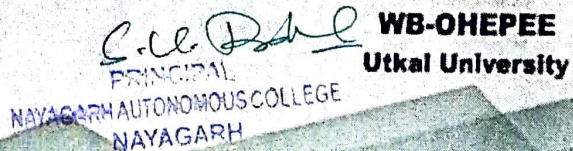 WB-OHEPEE
Utkal University
PRINCIPAL
NAYAGARH AUTONOMOUS COLLEGE
NAYAGARH